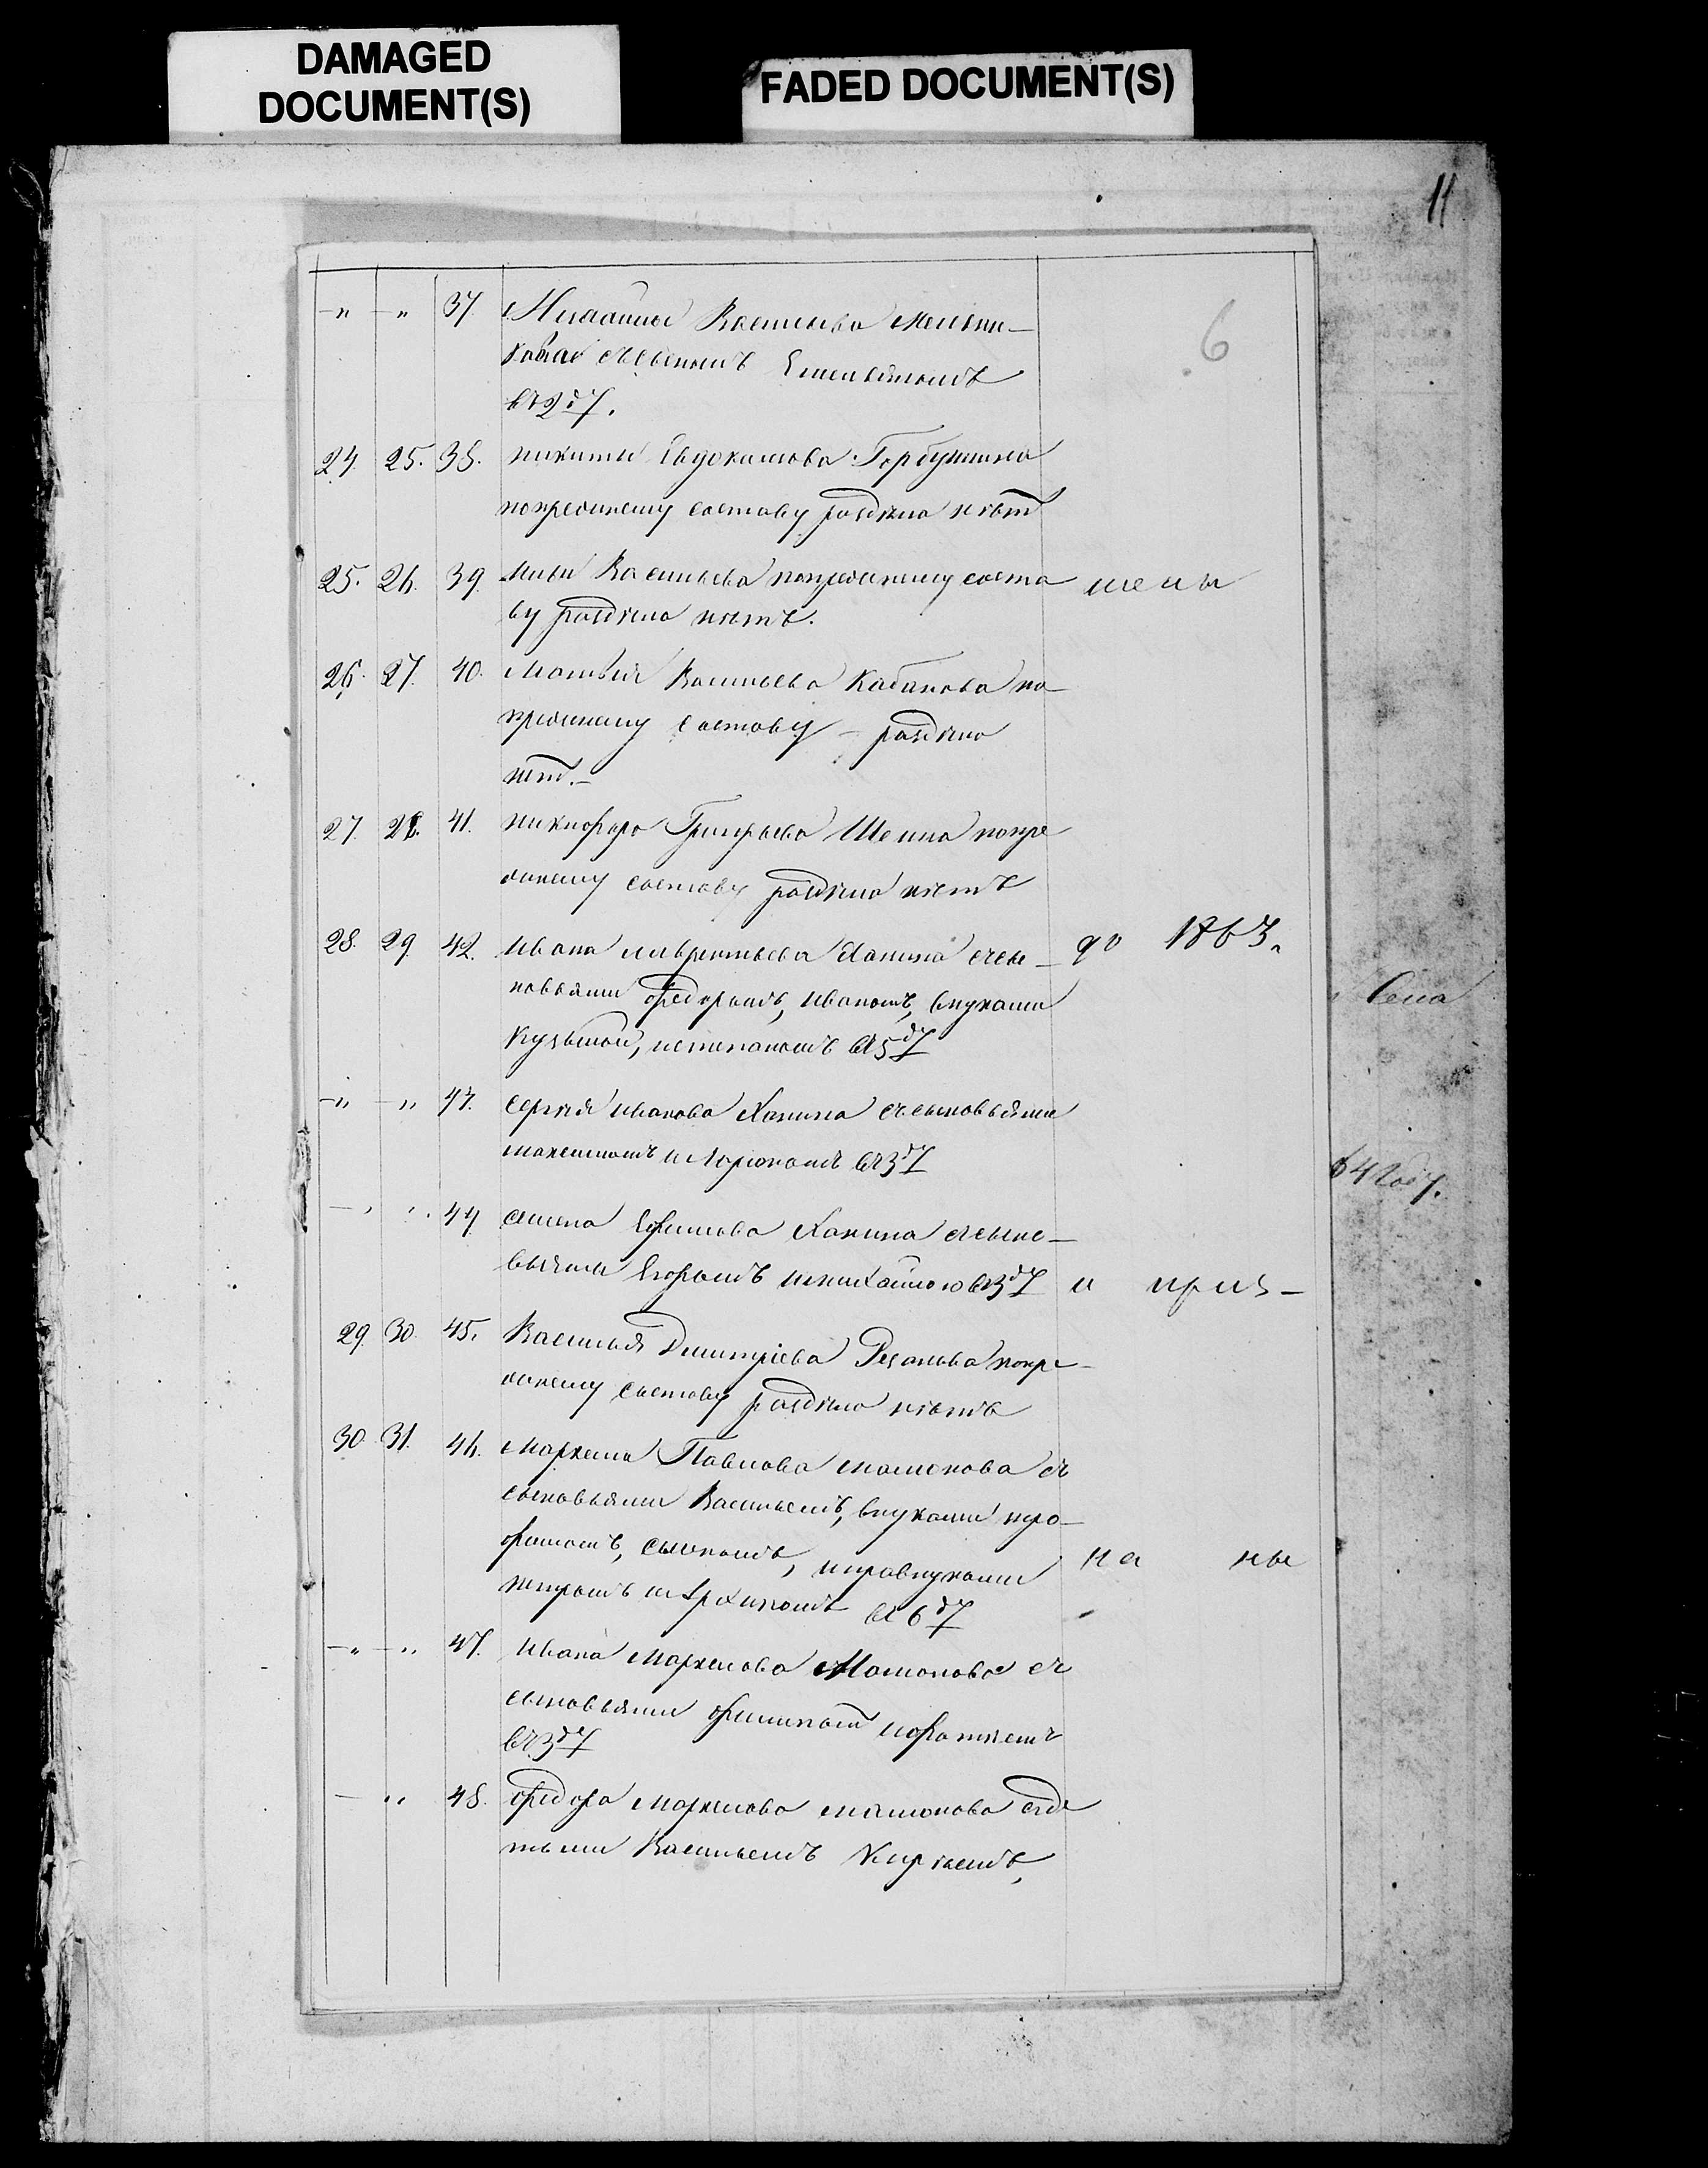 DAMAGED
DOCUMENT(S)
FADED DOCUMENT(S)
11
6
-"- " 37. Михаилы Васильева Мельни-
кова съ сыномъ Емельяномъ
въ 2 д.
24. 25. 38. Никиты Евдокимова Горбунина
попрежнему составу раздѣла нѣтъ
25. 26. 39. Ильи Васильева попрежнему соста
ву раздѣла нѣтъ.
мены
26. 27. 40. Матвѣя Васильева Кабанова по-
прежнему составу – раздѣла
нѣтъ.–
27. 28. 41. Никифора Григорьева Шеина попре
жнему составу раздѣла нѣтъ
28. 29. 42. Ивана Лаврентьева Ханина съ сы-
новьями Федоромъ, Иваномъ, внуками
Кузьмой, и Степаномъ въ 5 д.
до 1863.
Села
-"- " 43. Сергѣя Иванова Ханина съ сыновьями
Максимомъ и Ларіономъ въ 3 д.
64 году.
44. Семена Ефимова Ханина съ сыно-
вьями Егоромъ и Михайлою въ 3 д.
и приз-
29. 30. 45. Василья Дмитріева Резанова попре-
жнему составу раздѣла нѣтъ
30. 31. 46. Маркела Павлова Мамонова съ
сыновьями Васильемъ, внуками Тро-
фимомъ, Семеномъ, и правнуками
Петромъ и Архипомъ въ 6 д.
на ны
-"- " 47. Ивана Маркелова Мамонова съ
сыновьями Филипомъ и Фатѣемъ
въ 3 д.
- " 48. Федора Маркелова Мамонова съ дѣ
тьми Васильемъ Киріемъ,